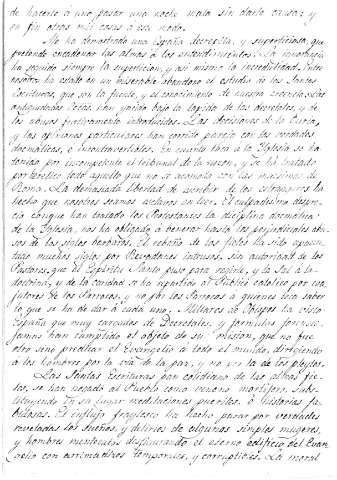 de hacerle a uno pasar una noche mala sin darle causa; y
en fin otras mil cosas a ese modo.
Me ha demostrado una España decrepita, y supersticiosa, que
pretende encadenar las almas y los entendimientos. La ignorancia
ha seguido siempre la supersticion, y asi mismo la incredulidad. Entre
nosotros ha estado en un miserable abandono el estudio de las Santas
Escrituras, que son la fuente, y el conocimiento de nuestra creencia. Las
antiguedades Ecl.as han yacido bajo la lapida de las decretales, y de
los abusos furtivamente introducidos. Las decisiones de la Curia,
y las opiniones particulares han corrido parejas con las verdades
dogmáticas, e incontrovertibles. En cuanto toca a la Iglesia se ha
tenido por incompetente el tribunal de la razon, y se ha tratado
por heretico todo aquello que no se acomoda con las maximas de
Roma. La demasiada libertad de escribir de los estrangeros ha
hecho que nosotros seamos esclavos en leer. El culpadisimo despre-
cio con que han tratado los Protestantes la disciplina dogmatica
de la Iglesia, nos ha obligado a venerar hasta los perjudiciales abu-
sos de los siglos barbaros. El rebaño de los fieles ha sido apacen-
tado muchos siglos por Pastores intrusos, sin autoridad de los
Pastores, que el Espiritu Santo puso para regirle, y la sal de la
doctrina, y de la caridad se ha repartido al Publico catolico por coa-
jutores de los Parrocos, y no por los Parrocos a quienes toca saber
lo que se ha de dar a cada uno. Millares de Obispos ha visto
España que muy cargados de Decretales, y formulas forenses
jamas han cumplido el objeto de su mision, que no fue
otro sino predicar el Evangelio a todo el mundo, dirigiendo
a los hombres por la via de la paz, y no por la de los pleytos.
Las Santas Escrituras pan cotidiano de las almas fie-
les, se han negado al Pueblo como veneno mortifero, subs-
tituyendo en su lugar meditaciones pueriles, e historias fa-
bulosas. El influjo frailesco ha hecho pasar por verdades
reveladas los sueños, y delirios de algunas simples mugeres,
y hombres mentecatos, desfigurando el eterno edificio del Evan-
gelio con arrimadizos temporales, y corruptibles. La moral